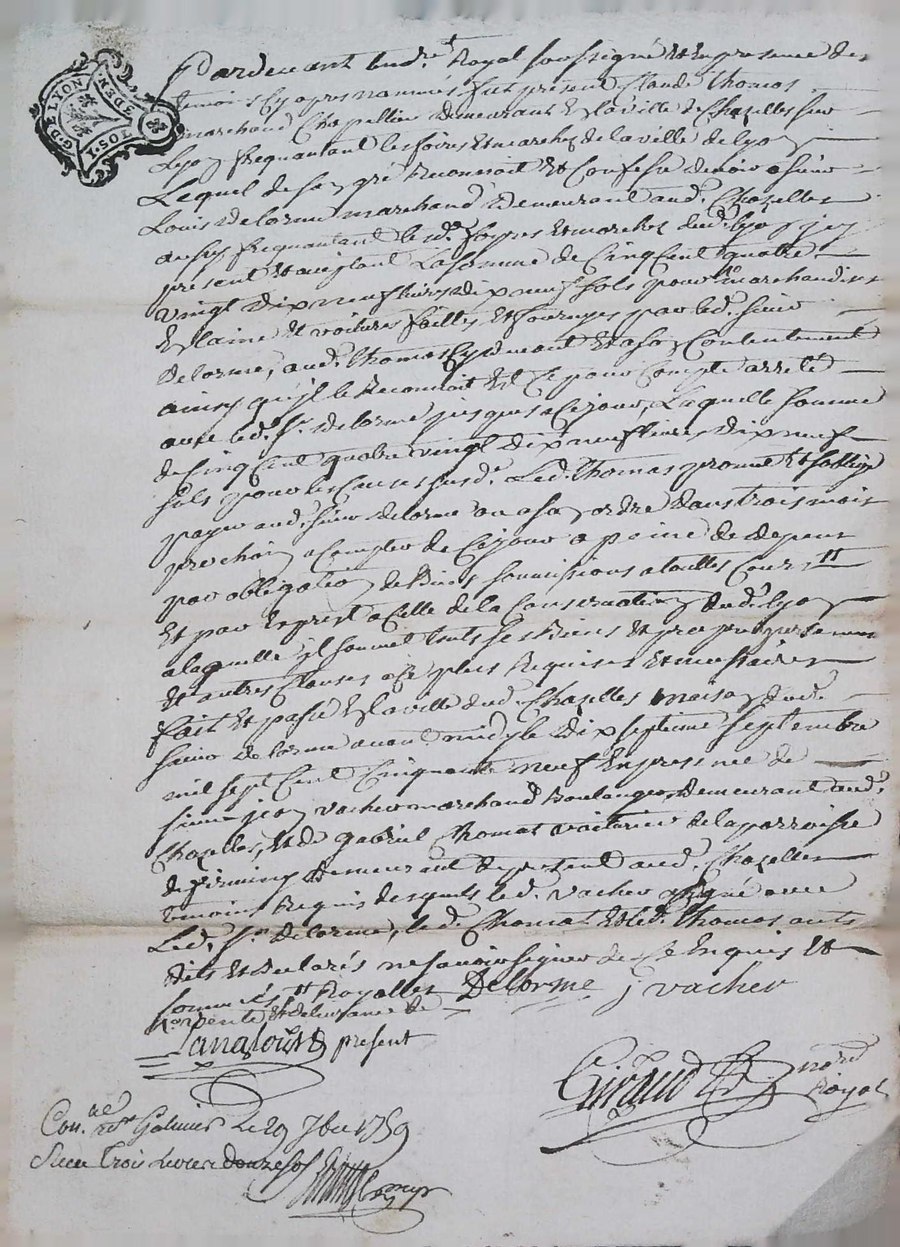 G. DE LYON
1. SOL
2. DE.
Pardevant le nore Royal soussigné Et En presence des
temoins Cy apres nommés fut présent Claude Thomas
marchand Chapellier demeurant En la ville de Chazelles sur
Lyon frequantant les foires Et marchez de la ville de Lyon
Lequel de son gré Reconnoit Et Confesse devoir a sieur
Louis Delorme marchand Demeurant aud. Chazelles
aussy frequantant lesd. foyres Et marches dud. Lyon jcy
présent Et aceptant La somme de Cinq Cent quatre
vingt Dix neuf livres Dix neuf sols pour marchandises
En laine Et voitures failles Et fournyes par led. sieur
Delorme, aud. Thomas Cydevant Et a son Contentement
ainsy qu'jl le Reconnoit Et Ce pour Compte arreté
avec led. Sr. Delorme jusques a Cejour, Laquelle somme
de Cinq Cent quatre vingt Dix neuf livres Dix neuf
sols pour les Causes susd. Led. Thomas promet Et soblige
payer aud. sieur Delorme ou a son ordre Dans trois mois
prochain a Compter de Cejour a peine de Depens
par obligation de Biens soumissions a touttes Cours
Et par Exprest a Celle de la Conservation dud. Lyon
a laquelle jl soumet touts ses Biens Et propre personne
Et autres Clauses a Ce plus Requises Et nessaires
fait Et passé En la ville dud. Chazelles maison dud.
sieur Delorme avant midy le Dix septieme septembre
mil sept Cent Cinquante neuf En presence de
sieur jean vacher marchand Boulanger Demeurant aud.
Chazelles, Et de gabriel Chomat voiturier de la parroisse
de firminy Demeurant De present aud. Chazelles
temoins Requis desquels led. vacher a signé avec
Led. Sr. Delorme, led. Chomat Et led. Thomas ont
dit Et Declarés ne savoir signer de Ce Enquis Et
sommés Royalles Delorme j vacher
present
Giraud nore Royal
Con.le St Galmier Le 29 7bre 1759
Reçu Trois Livres douze sol